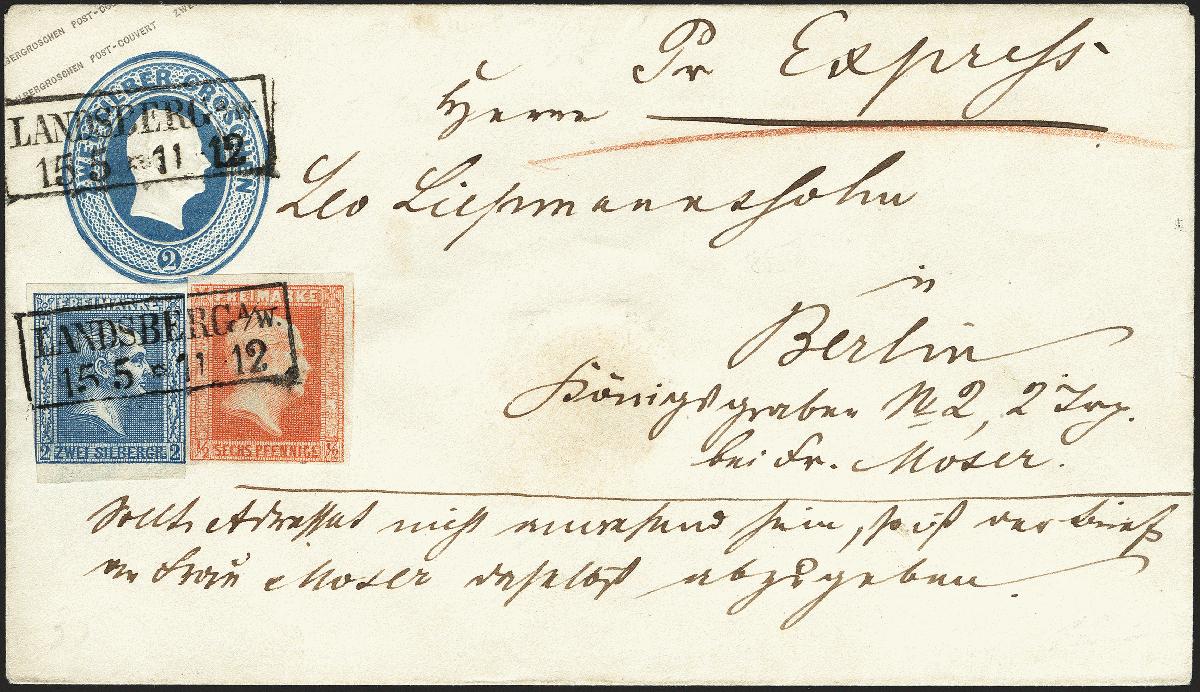 SILBERGROSCHEN POST-COUVERT ZWEI
SILBERGROSCHEN POST-COUVERT
SILBERGROSCHEN
ZWEI SILBER GROSCHEN
2
LANDSBERG A/W.
15 5 11 12
FREIMARKE
2 ZWEI SILBERGR. 2
FREIMARKE
½ SECHS PFENNIGE ½
LANDSBERG A/W.
15 5 11 12
Pr Express
Herrn
Leo Liepmannssohn
in
Berlin
Königsgraben No 2, 2 Trp.
bei Fr. Moser.
Sollte Adressat nicht anwesend sein, so ist der Brief
an Frau Moser daselbst abzugeben.